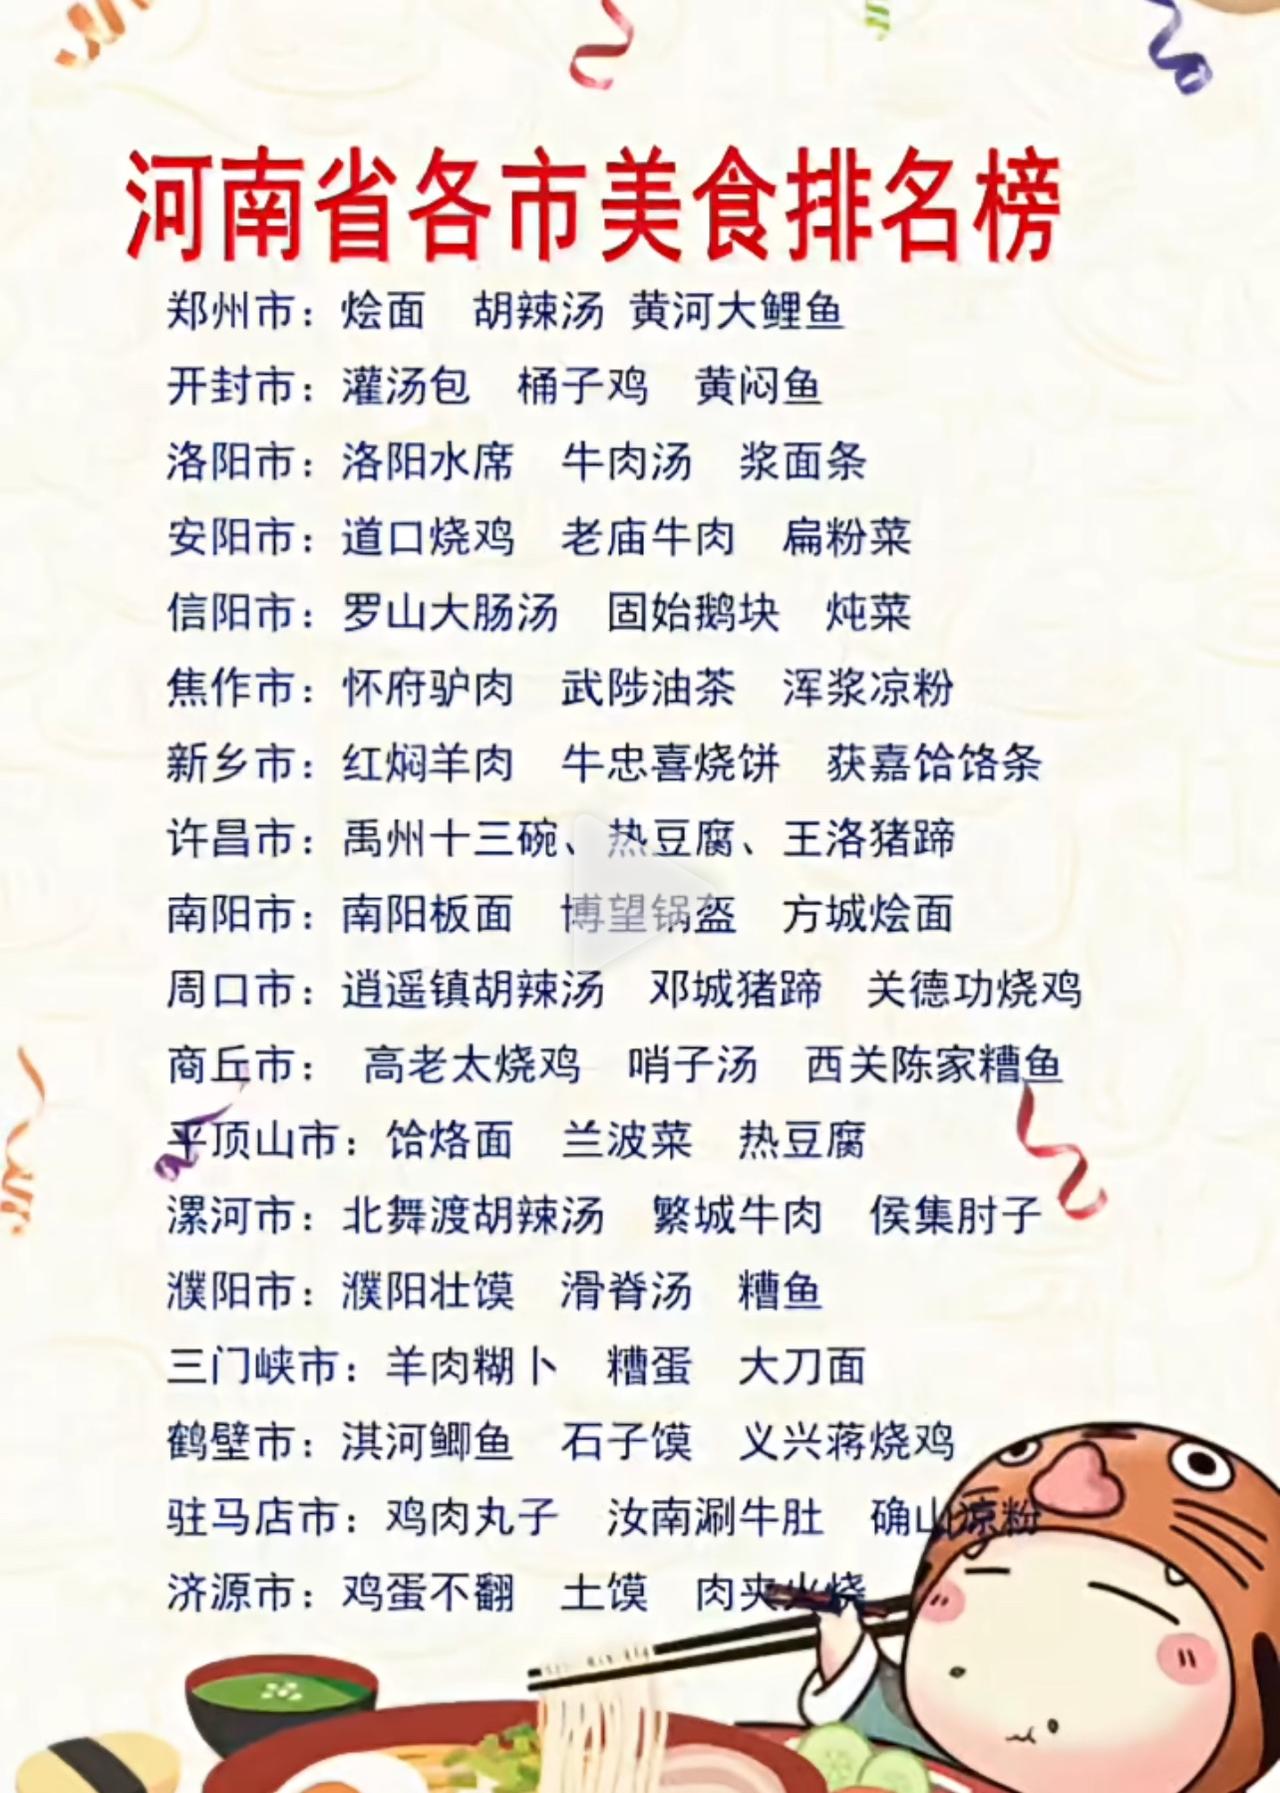 河南省各市美食排名榜
郑州市：烩面 胡辣汤 黄河大鲤鱼
开封市：灌汤包 桶子鸡 黄闷鱼
洛阳市：洛阳水席 牛肉汤 浆面条
安阳市：道口烧鸡 老庙牛肉 扁粉菜
信阳市：罗山大肠汤 固始鹅块 炖菜
焦作市：怀府驴肉 武陟油茶 浑浆凉粉
新乡市：红焖羊肉 牛忠喜烧饼 获嘉饸饹条
许昌市：禹州十三碗、热豆腐、王洛猪蹄
南阳市：南阳板面 博望锅盔 方城烩面
周口市：逍遥镇胡辣汤 邓城猪蹄 关德功烧鸡
商丘市： 高老太烧鸡 哨子汤 西关陈家糟鱼
平顶山市：饸烙面 兰波菜 热豆腐
漯河市：北舞渡胡辣汤 繁城牛肉 侯集肘子
濮阳市：濮阳壮馍 滑脊汤 糟鱼
三门峡市：羊肉糊卜 糟蛋 大刀面
鹤壁市：淇河鲫鱼 石子馍 义兴蒋烧鸡
驻马店市：鸡肉丸子 汝南涮牛肚 确山凉粉
济源市：鸡蛋不翻 土馍 肉夹火烧